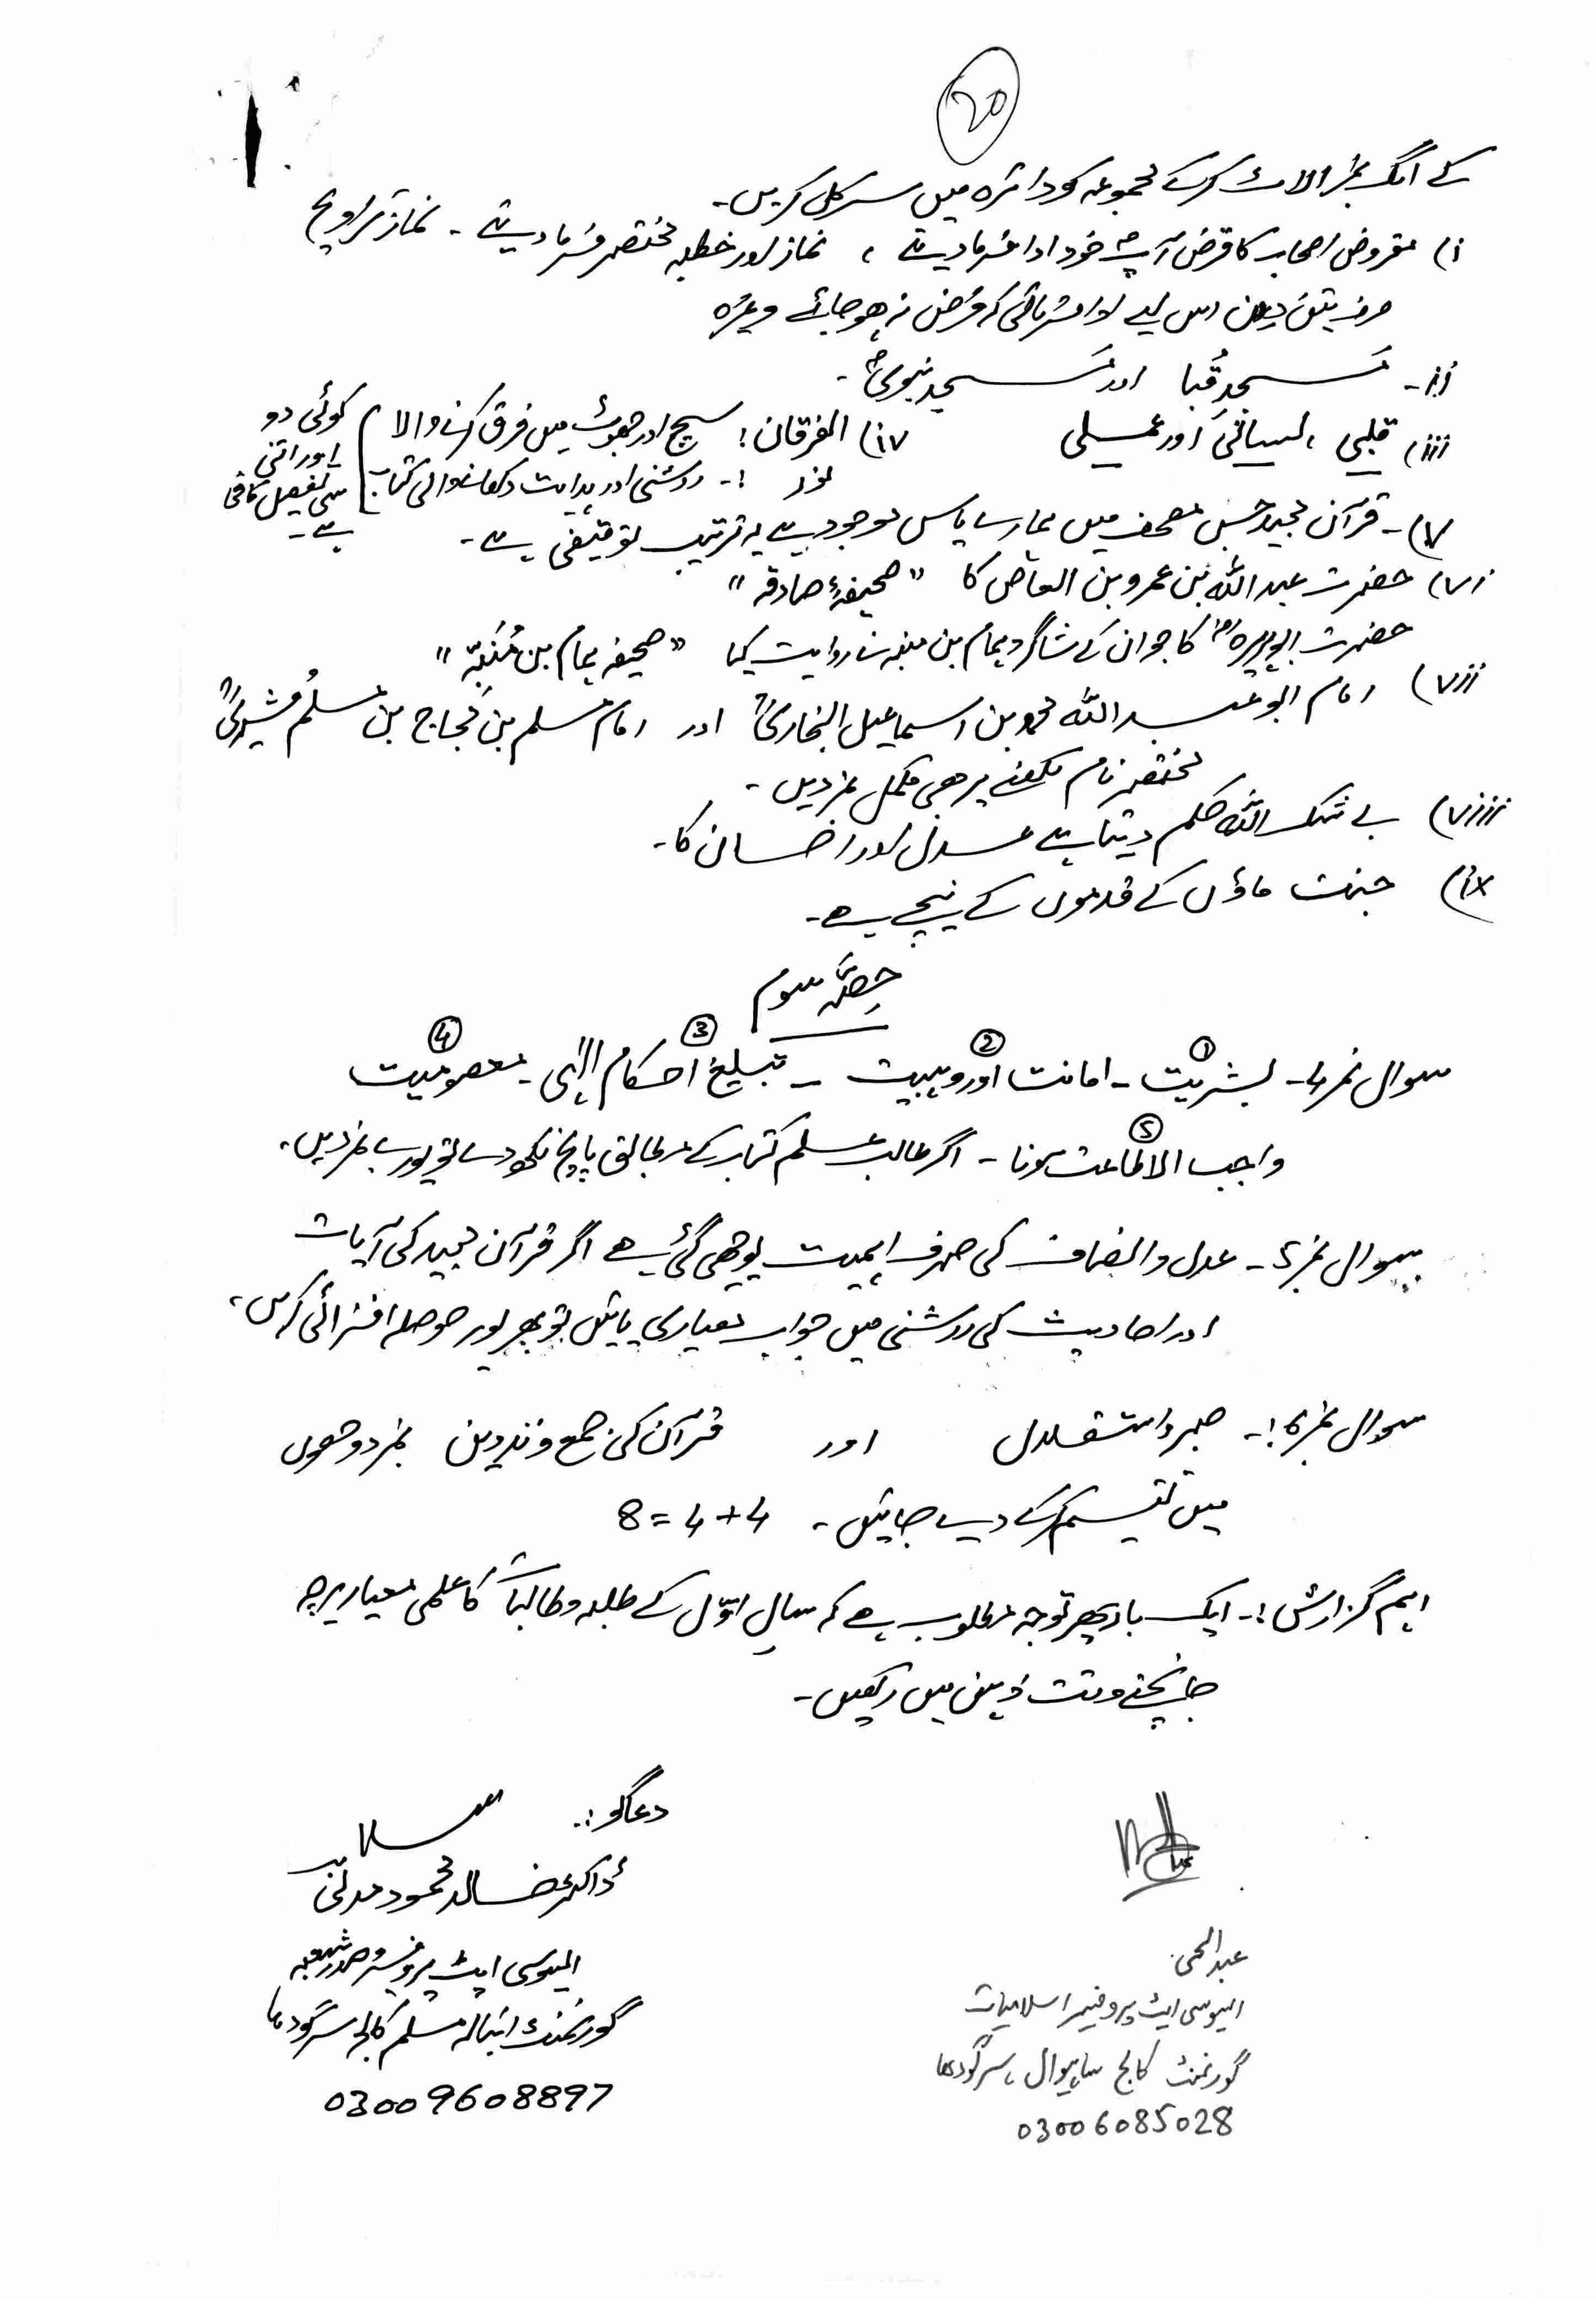 20
کے الگ نمبر الاٹ کرکے مجموعہ کو دائرہ میں سرکل کریں۔
i) مقروض اصحاب کا قرض آپؐ خود ادا فرما دیتے ، نماز اور خطبہ مختصر فرما دیتے ۔ نماز تراویح
صرف تین دن اس لیے ادا فرمائی کہ فرض نہ ہو جائے وغیرہ
ii۔ مَسجدِ قُبا اور مَسجدِ نبویؐ ۔
iii) قلبی ، لسانی اور عملی
iv) الفرقان : سچ اور جھوٹ میں فرق کرنے والا
نور :۔ روشنی اور ہدایت دکھانے والی کتاب
کوئی دو اور اتنی سی تفصیل کافی ہے۔
v)۔ قرآن مجید جس مصحف میں ہمارے پاس موجود ہے یہ ترتیب توقیفی ہے ۔
vi) حضرت عبداللہ بن عمرو بن العاص کا "صحیفہٴ صادقہ"
حضرت ابوہریرہؓ کا جو ان کے شاگرد ہمام بن منبہ نے روایت کیا "صحیفہ ہمام بن مُنَبّہ"
vii) امام ابو عبداللہ محمد بن اسماعیل البخاریؒ اور امام مسلم بن حجاج بن مسلم قشیریؒ
مختصر نام لکھنے پر بھی مکمل نمبر دیں ۔
viii) بے شک اللہ حکم دیتا ہے عدل اور احسان کا ۔
ix) جنت ماؤں کے قدموں کے نیچے ہے ۔
حصّہ سوم
سوال نمبر 4۔ ① بشریت ۔ ② امانت اور وہبیت ۔ ③ تبلیغ احکام الٰہی ۔ ④ معصومیت
⑤ واجب الاطاعت ہونا ۔ اگر طالب علم کتاب کے مطابق پانچ لکھ دے تو پورے نمبر دیں ۔
سوال نمبر 5۔ عدل و انصاف کی صرف اہمیت پوچھی گئی ہے اگر قرآن مجید کی آیات
اور احادیث کی روشنی میں جواب معیاری پائیں تو بھرپور حوصلہ افزائی کریں ،
سوال نمبر 6 :۔ صبر و استقلال اور قرآن کی جمع و تدوین نمبر دو حصوں
میں تقسیم کرکے دیے جائیں ۔ 8 = 4 + 4
اہم گزارش :۔ ایک بار پھر توجہ مطلوب ہے کہ سال اوّل کے طلبہ و طالبات کا علمی معیار پرچہ
جانچتے وقت ذہن میں رکھیں ۔
دعاگو :۔
ڈاکٹر خالد محمود مدنی
ایسوسی ایٹ پروفیسر و صدر شعبہ
گورنمنٹ انبالہ مسلم کالج سرگودھا
03009608897
عبدالحی
ایسوسی ایٹ پروفیسر اسلامیات
گورنمنٹ کالج ساہیوال ، سرگودھا
03006085028